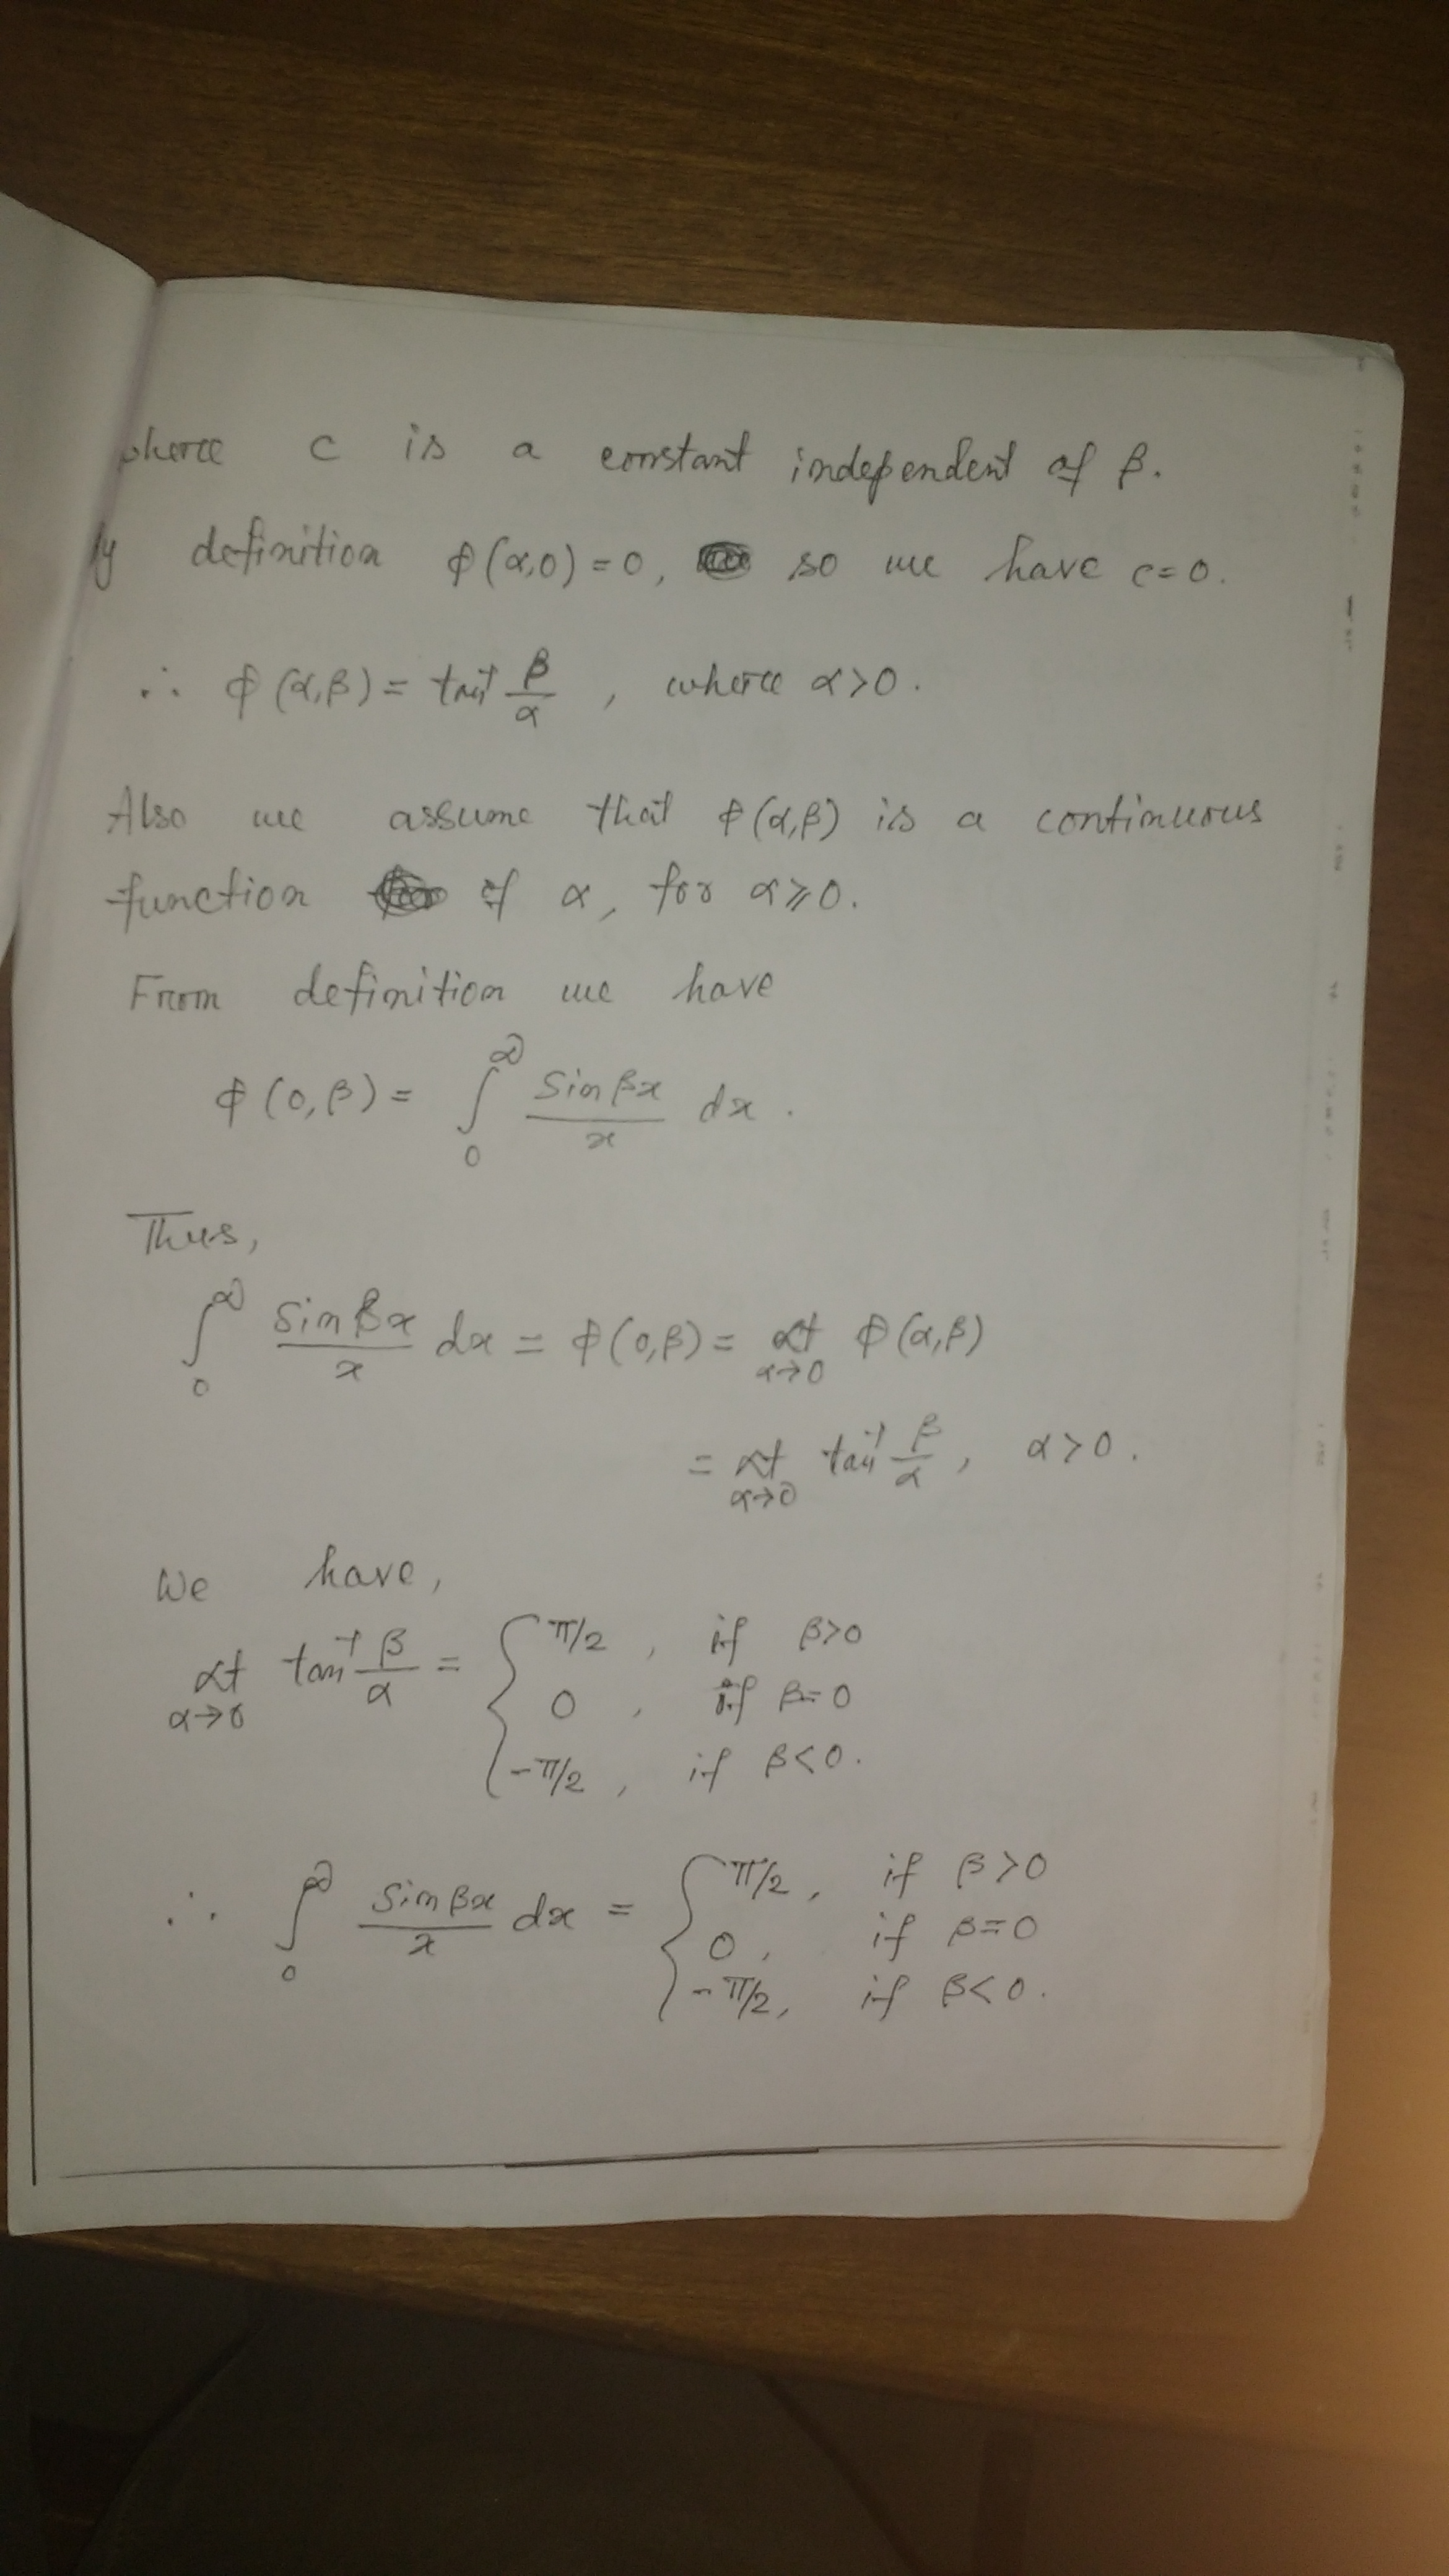 where c is a constant independent of β.
By definition φ(α,0) = 0, so we have c = 0.
∴ φ(α,β) = tan⁻¹ β/α , where α>0.
Also we assume that φ(α,β) is a continuous
function of α, for α⩾0.
From definition we have
φ(0,β) = ∫₀^∞ Sin βx / x dx .
Thus,
∫₀^∞ Sin βx / x dx = φ(0,β) = Lt_{α→0} φ(α,β)
= Lt_{α→0} tan⁻¹ β/α , α>0.
We have,
Lt_{α→0} tan⁻¹ β/α = { π/2 , if β>0
0 , if β=0
-π/2 , if β<0.
∴ ∫₀^∞ Sin βx / x dx = { π/2 , if β>0
0 , if β=0
-π/2 , if β<0.